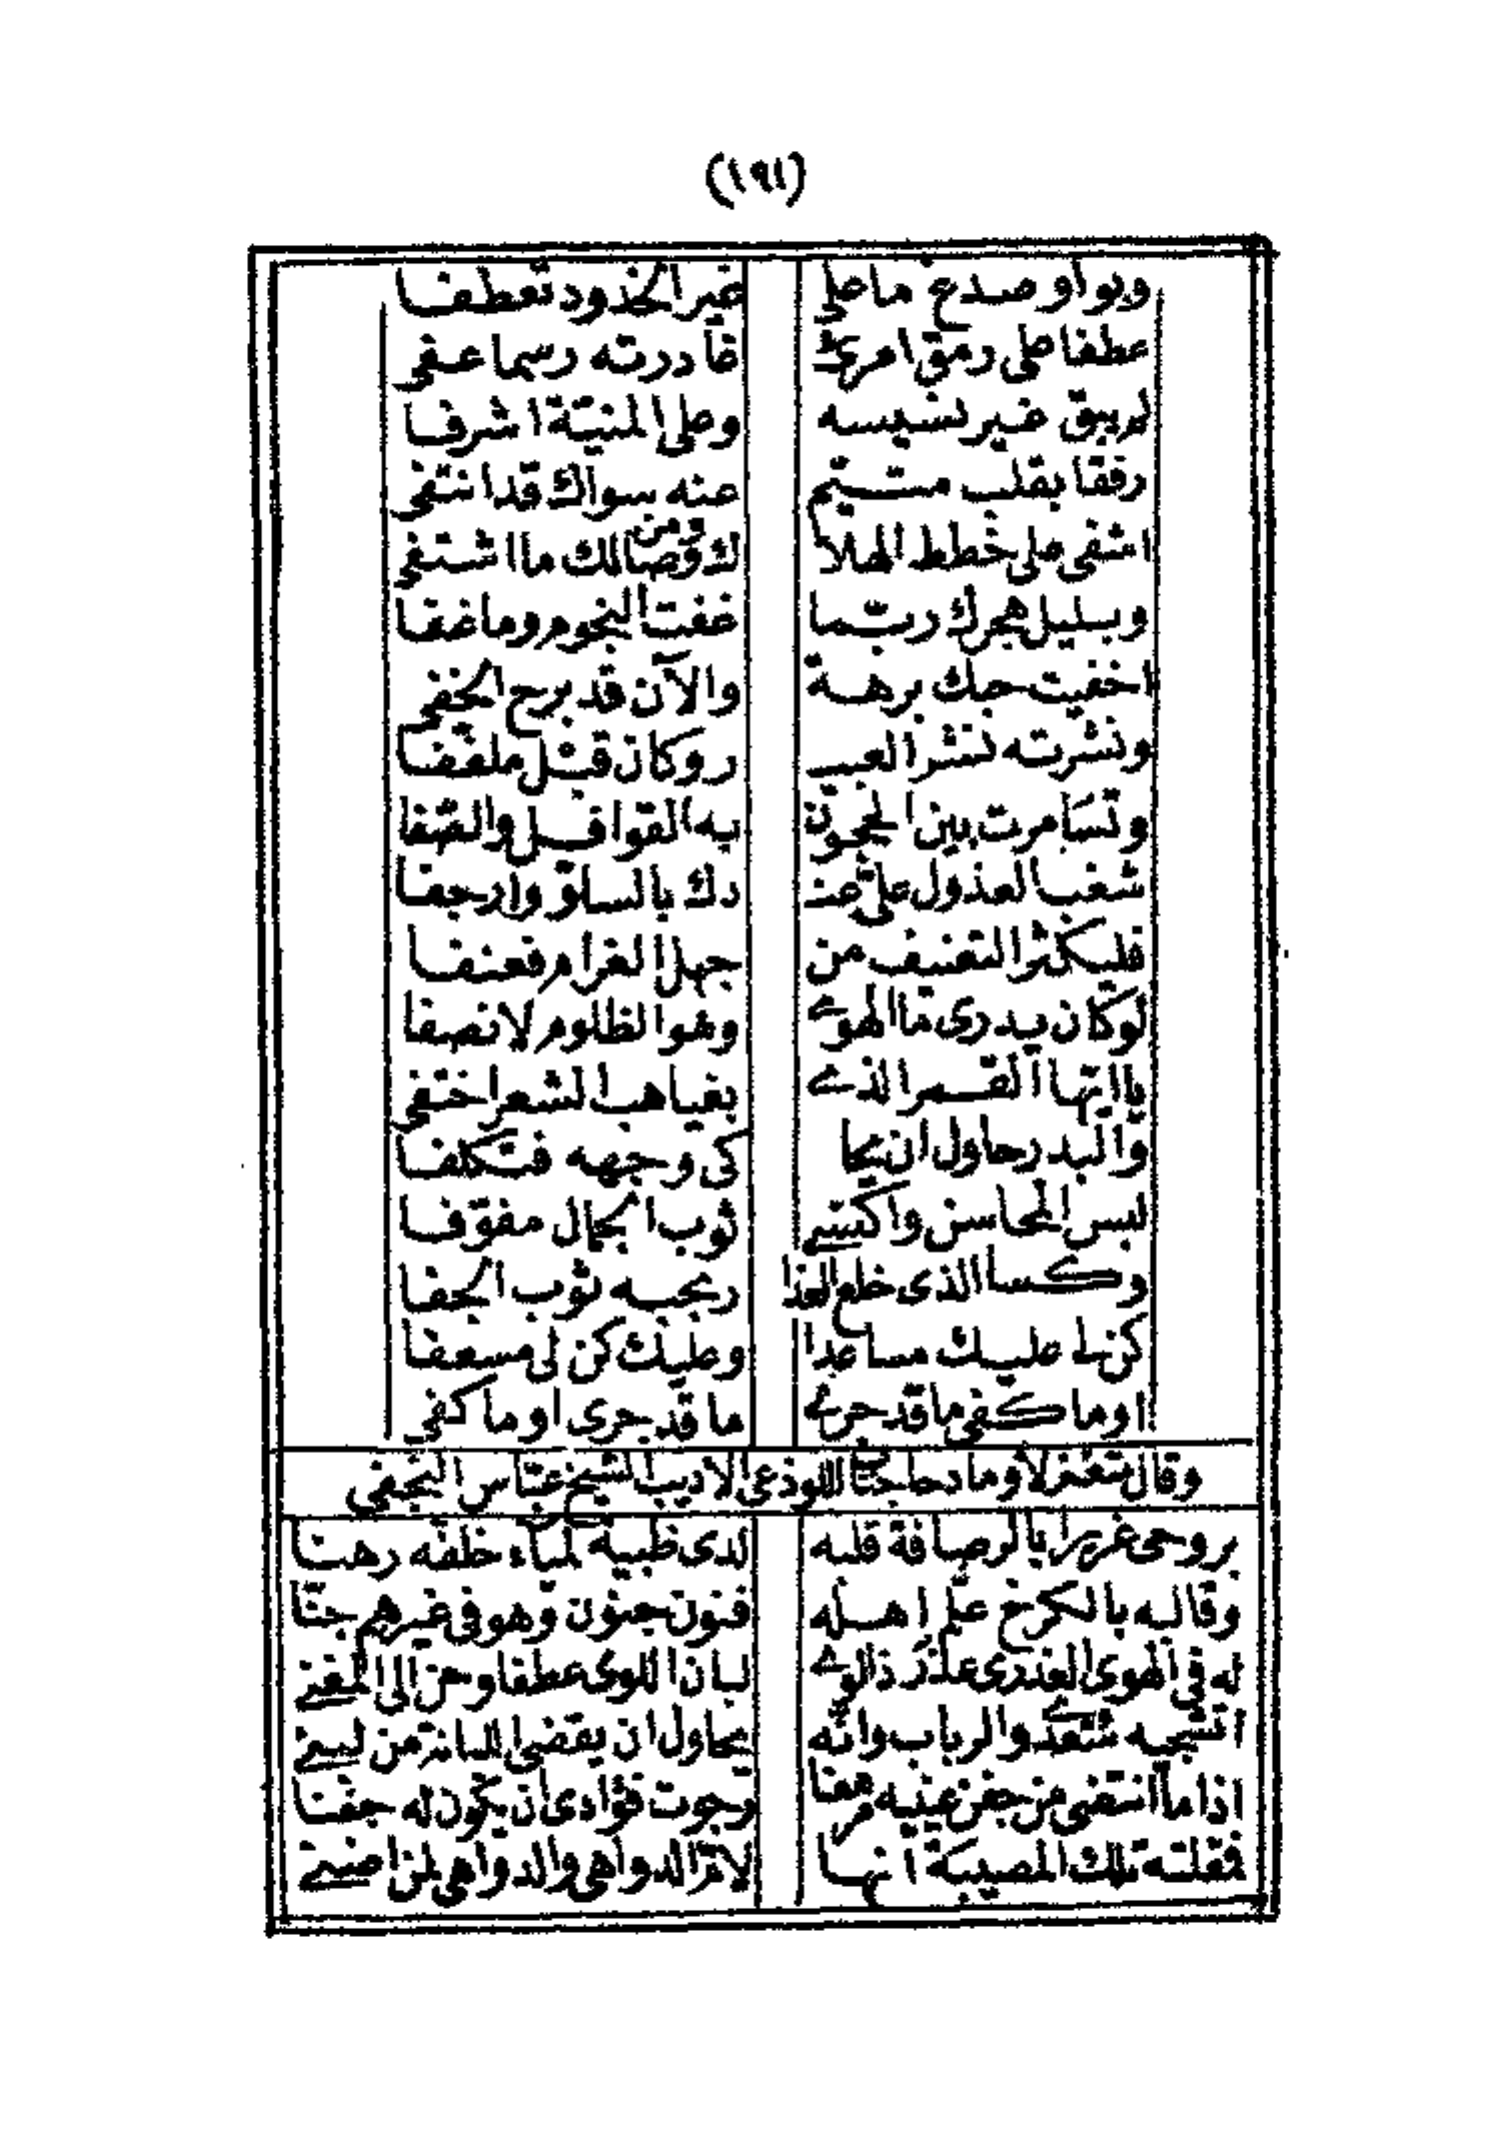 (١٩١)
وبواو صدغ ما على غير الخدود تعطفا
عطفا على رمق امرئ غادرته رسما عفى
لم يبق غير نسيسه وعلى المنيّة اشرفا
رفقا بقلب متيم عنه سواك قد انتفى
اشفى على خطط الهلا ك ومن وصالك ما اشتفى
وبليل هجرك ربّما غفت النجوم وما غفا
اخفيت حبك برهة والآن قد برح الخفى
ونشرته نشر العبيـ ر وكان قبل ملففا
وتسامرت بين الحجون به القوافل والصّفا
شغب العذول علىّ عنـ دك بالسلوّ وارجفا
فليكثر التعنيف من جهل الغرام فعنفا
لو كان يدرى ما الهوى وهو الظلوم لانصفا
يا ايّها القمر الذى بغياهب الشعر اختفى
والبدر حاول ان يحا كى وجهه فتكلفا
لبس المحاسن واكتسى ثوب الجمال مفوّفا
وكسا الذى خلع العذا ر بحبه ثوب الجفا
كن لى عليك مساعدا وعليك كن لى مسعفا
اوما كفى ما قد جرى ما قد جرى اوما كفى
وقال متغزلا ومادحا جناب اللوذعى الأديب الشيخ عبّاس النجفي
بروحى غريرا بالرصافة قلبه لدى ظبية لمياء خلفه رهنا
وقالبه بالكرخ علّم اهله فنون جنون وهو فى غيرهم جنّا
له فى الهوى العذرى عذر ذا لوى لبان اللوى عطفا وحن الى المغنى
اتشجيه سعدى والرباب وانّه يحاول ان يقضى اللبانة من لبنى
اذا ما انتضى من جفن عينيه مرهفا رجوت فؤادى ان يكون له جفنا
فمقلته تلك المصيبة انها لامّ الدواهى والدواهى لمن اضنى